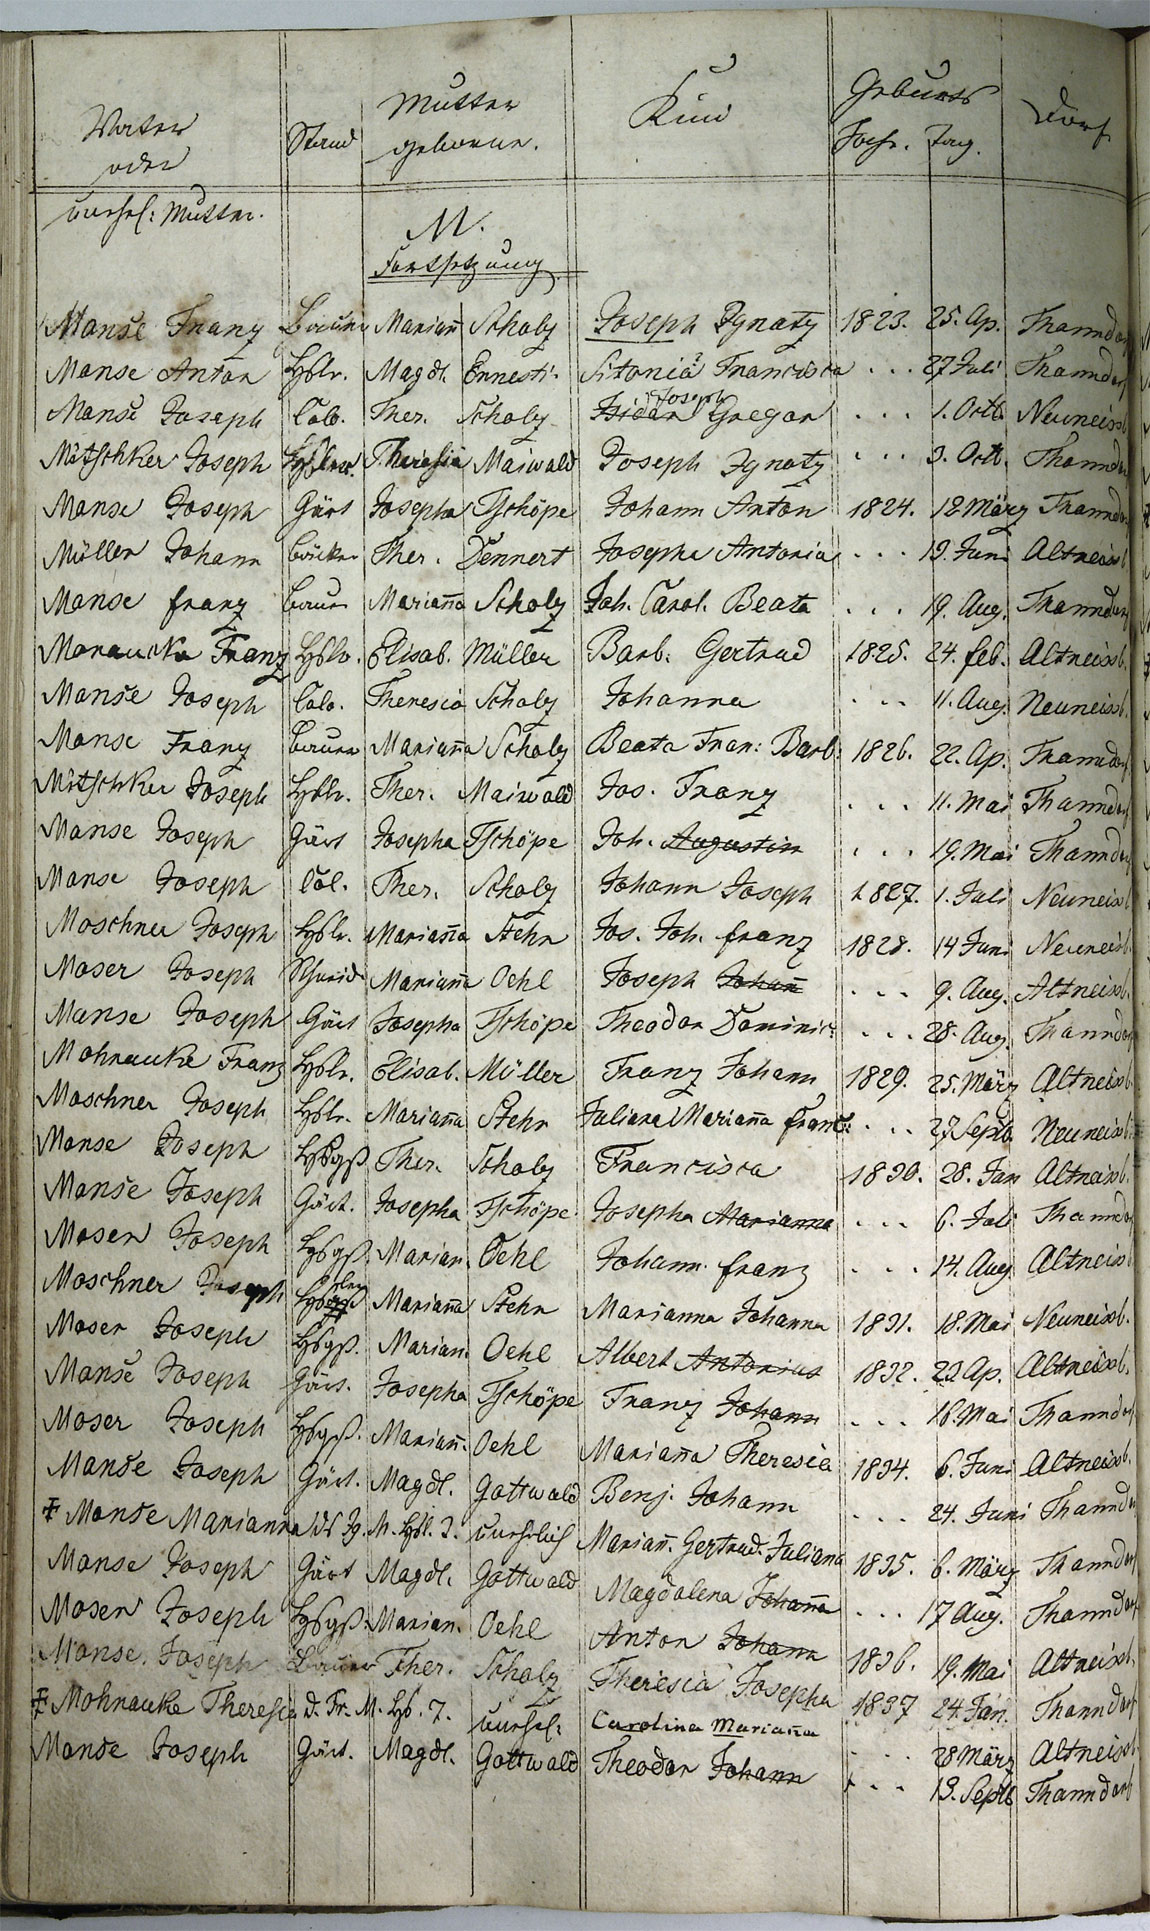 Vater oder unehel: Mutter. Stand Mutter geborne. Kind Geburts Jahr. Tag. Dorf
M.
Fortsetzung
Manse Franz Bauer Mariañ Scholz Joseph Ignatz 1823. 25. Ap. Thanndorf
Manse Anton Hßlr. Magdl. Ernesti. Sitonia Francisca . . . 27 Juli Thanndorf
Manse Joseph Colo. Ther. Scholz Isidor Joseph Gregor . . . 1. Octb. Neuneissb.
Mitschker Joseph Hßler. Theresia Maiwald Joseph Ignatz . . . 3. Octb. Thanndo
Manse Joseph Gärt Josepha Tschöpe Johann Anton 1824. 12 März Thanndo
Müller Johann Bäcker Ther. Dennert Josepha Antonia . . . 13. Juni Altneissb
Manse Franz Bauer Mariana Scholz Joh. Carol. Beata . . . 19. Aug. Thanndorf
Manaucke Franz Hßlr. Elisab. Müller Barb. Gertrud 1825. 24. Feb. Altneissb.
Manse Joseph Colo. Theresia Scholz Johanna . . . 11. Aug. Neuneissb.
Manse Franz Bauer Mariana Scholz Beata Fran: Barb: 1826. 22. Ap. Thanndorf
Mitschker Joseph Hßlr. Ther. Maiwald Jos. Franz . . . 11. Mai Thanndorf
Manse Joseph Gärt Josepha Tschöpe Joh. Augustin . . . 19. Mai Thanndorf
Manse Joseph Col. Ther. Scholz Johann Joseph 1827. 1. Juli Neuneissb
Moschner Joseph Hßlr. Mariana Stehr Jos. Joh. Franz 1828. 14 Juni Neuneissb.
Moser Joseph Schmid Mariana Oehl Joseph Johañ . . . 9. Aug. Altneissb.
Manse Joseph Gärt Josepha Tschöpe Theodor Dominic: . . . 28. Aug. Thanndorf
Mohnaucke Franz Hßlr. Elisab. Müller Franz Johann 1829. 25. März Altneissb
Moschner Joseph Hßlr. Mariana Stehr Juliana Mariana Franc: . . . 27. Septb. Neuneissb.
Manse Joseph Hßgß Ther. Scholz Francisca 1830. 28. Jan Altneissb.
Manse Joseph Gärt. Josepha Tschöpe Josepha Marianna . . . 6. Juli Thanndorf
Moser Joseph Hßgß. Marian. Oehl Johann Franz . . . 14. Aug. Altneissb
Moschner Joseph Hßler Mariana Stehr Marianna Johanna 1831. 18. Mai Neuneissb.
Moser Joseph Hßgß. Marian. Oehl Albert Antonius 1832. 23 Ap. Altneissb.
Manse Joseph Gärt. Josepha Tschöpe Franz Johann . . . 18. Mai Thanndorf
Moser Joseph Hßgß. Mariañ. Oehl Mariana Theresia 1834. 6. Juni Altneissb.
Manse Joseph Gärt. Magdl. Gottwald Benj. Johann . . . 24. Juni Thanndorf
Manse Marianna M. Hßl. T. unehlich Mariañ. Gertrud. Juliana 1835. 6. März Thanndorf
Manse Joseph Gärt Magdl. Gottwald Magdalena Johana . . . 17 Aug. Thanndorf
Moser Joseph Hßgß. Marian. Oehl Anton Johann 1836. 19. Mai Altneissb.
Manse Joseph Bauer Ther. Scholz Theresia Josepha 1837 24. Jan. Thanndorf
Mohnaucke Theresia d. Fr. M. Hß. T. unehel: Carolina Mariana . . . 28 März Altneissb
Manse Joseph Gärt. Magdl. Gottwald Theodor Johann . . . 13. Septb Thanndorf